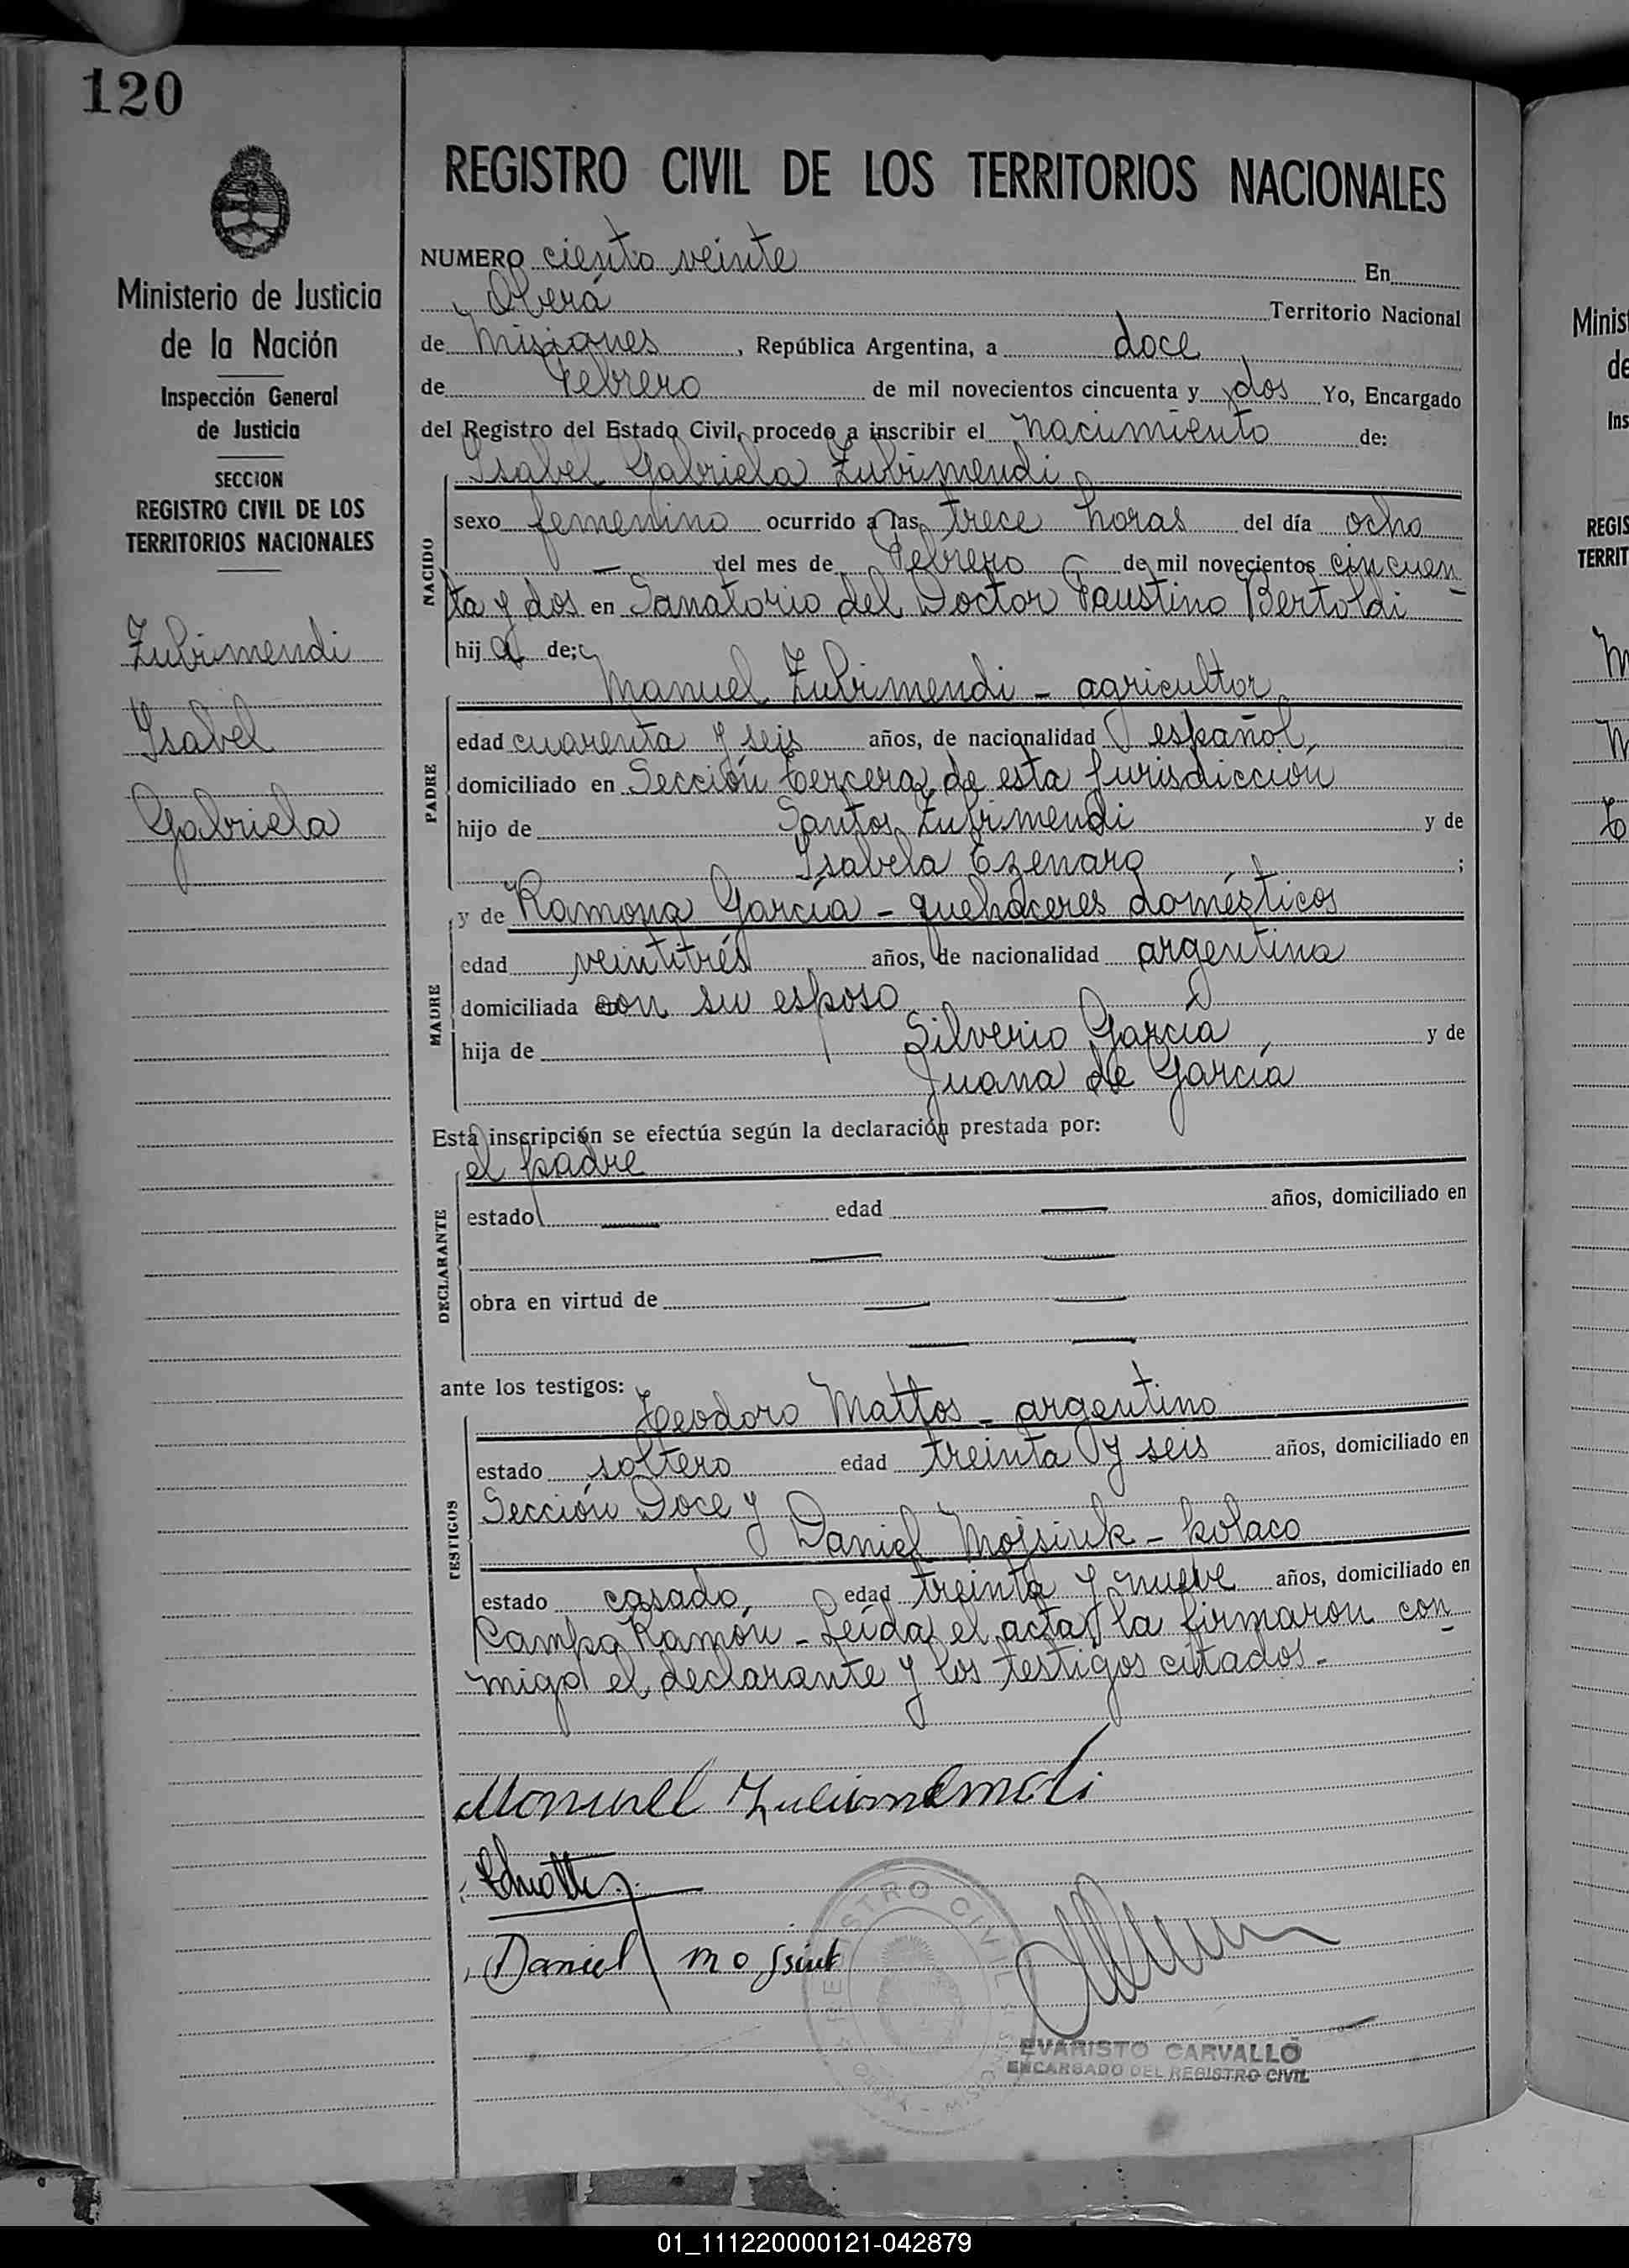 120
Ministerio de Justicia
de la Nación
Inspección General
de Justicia
SECCION
REGISTRO CIVIL DE LOS
TERRITORIOS NACIONALES
Zubimendi
Isabel
Gabriela
REGISTRO CIVIL DE LOS TERRITORIOS NACIONALES
NUMERO ciento veinte En
Oberá Territorio Nacional
de Misiones, República Argentina, a doce
de Febrero de mil novecientos cincuenta y dos Yo, Encargado
del Registro del Estado Civil, procedo a inscribir el nacimiento de:
Isabel Gabriela Zubimendi
NACIDO
sexo femenino ocurrido a las trece horas del día ocho
— del mes de Febrero de mil novecientos cincuen-
ta y dos en Sanatorio del Doctor Faustino Bertoldi
hija de:
Manuel Zubimendi - agricultor
PADRE
edad cuarenta y seis años, de nacionalidad español,
domiciliado en Sección tercera de esta jurisdicción
hijo de Santos Zubimendi y de
Isabela Ezenarro;
y de Ramona García - quehaceres domésticos
MADRE
edad veintitrés años, de nacionalidad argentina
domiciliada con su esposo
hija de Silverio García y de
Juana de García
Esta inscripción se efectúa según la declaración prestada por:
el padre
DECLARANTE
estado — edad — años, domiciliado en
— —
obra en virtud de — —
— —
ante los testigos:
Teodoro Mattos - argentino
TESTIGOS
estado soltero edad treinta y seis años, domiciliado en
Sección Doce y
Daniel Mojsiuk - polaco
estado casado, edad treinta y nueve años, domiciliado en
Campo Ramón - Leída el acta, la firmaron con-
migo el declarante y los testigos citados.-
Manuel Zubimendi
Daniel Mojsiuk
REGISTRO CIVIL
EVARISTO CARVALLO
ENCARGADO DEL REGISTRO CIVIL
Minis
de
Ins
REGIS
TERRIT
01_111220000121-042879